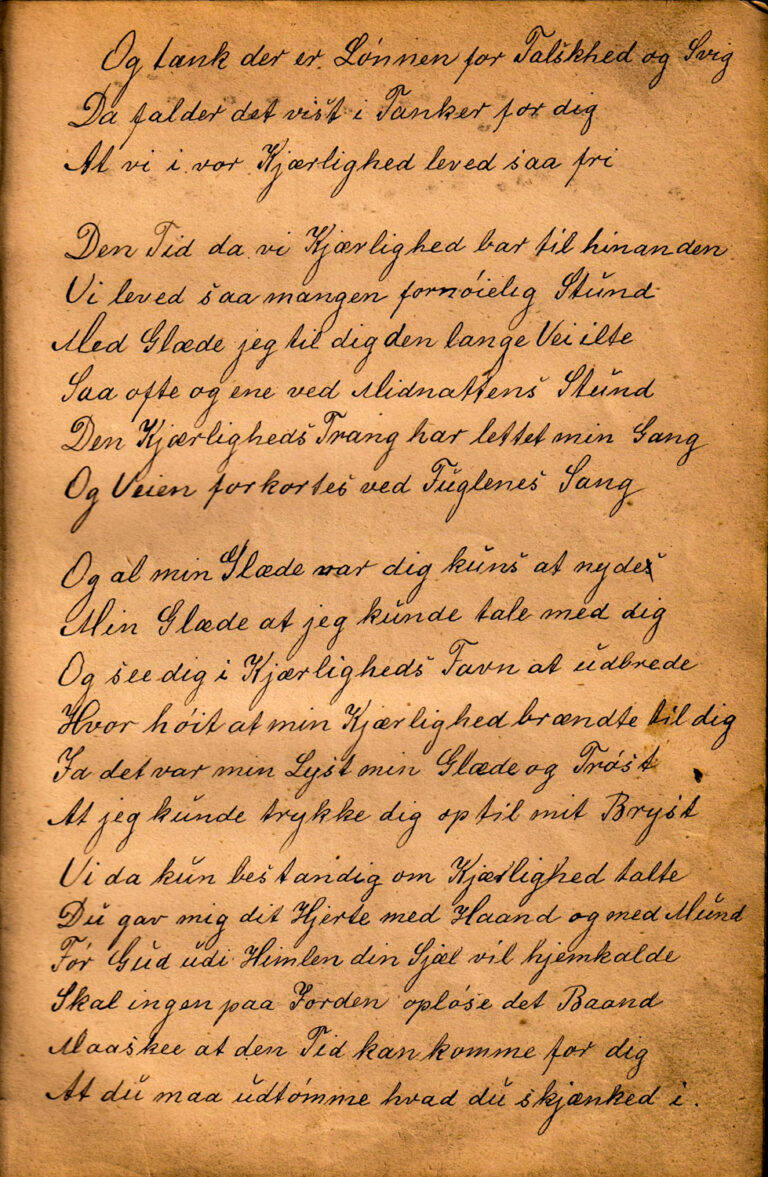 Og tænk der er Lønnen for Falskhed og Svig
Da falder det vist i Tanker for dig
At vi i vor Kjærlighed leved saa fri
Den Tid da vi Kjærlighed bar til hinanden
Vi leved saa mangen fornøielig Stund
Med Glæde jeg til dig den lange Vei ilte
Saa ofte og ene ved Midnattens Stund
Den Kjærligheds Trang har lettet min Gang
Og Veien forkortes ved Fuglenes Sang
Og al min Glæde var dig kuns at nydes
Min Glæde at jeg kunde tale med dig
Og see dig i Kjærligheds Favn at udbrede
Hvor høit at min Kjærlighed brændte til dig
Ja det var min Lyst min Glæde og Trøst
At jeg kunde trykke dig op til mit Bryst
Vi da kun bestandig om Kjærlighed talte
Du gav mig dit Hjerte med Haand og med Mund
Før Gud udi Himlen din Sjæl vil hjemkalde
Skal ingen paa Jorden opløse det Baand
Maaskee at den Tid kan komme for dig
At du maa udtømme hvad du skjænked i.